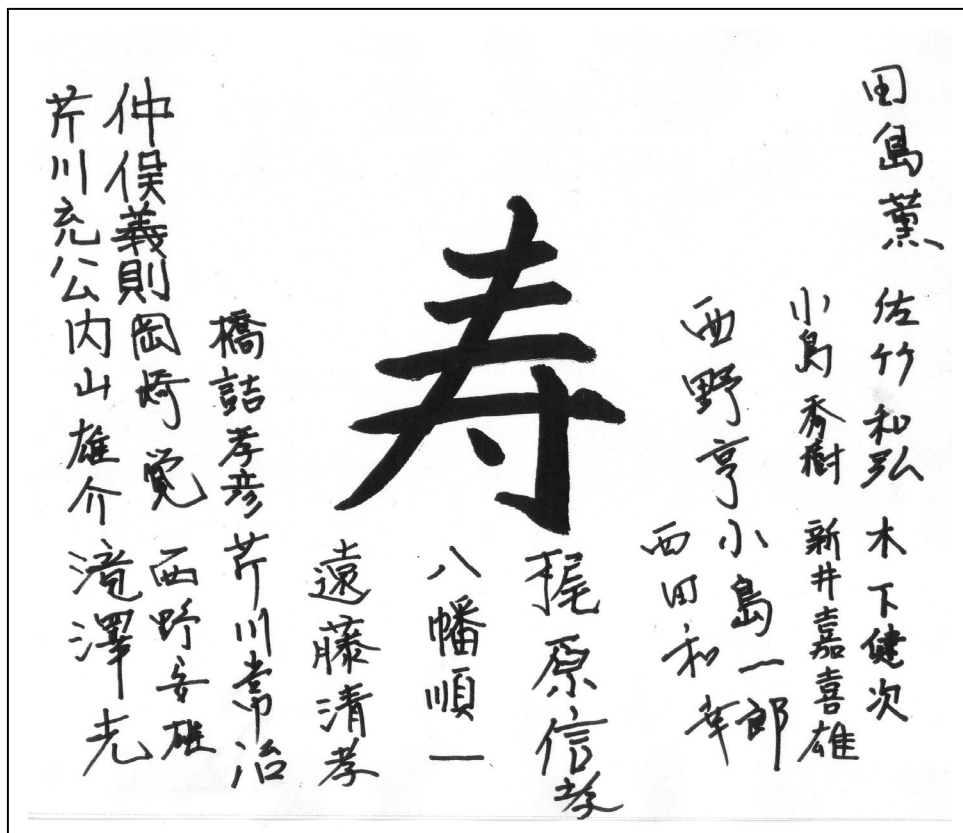 田島薫
佐竹和弘
木下健次
小島秀樹
新井嘉喜雄
西野亨
小島一郎
西田和幸
寿
梶原信孝
八幡順一
遠藤清孝
橋詰孝彦
芹川常治
仲俣義則
岡崎覚
西野安雄
芹川充公
内山雄介
滝澤光